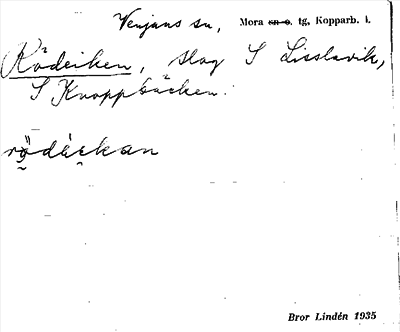 Venjans sn, Mora sn o. tg, Kopparb. l.
Rödeiken, slog S Lisslavik,
S Knoppbäcken.
rödèi̯kan
Bror Lindén 1935